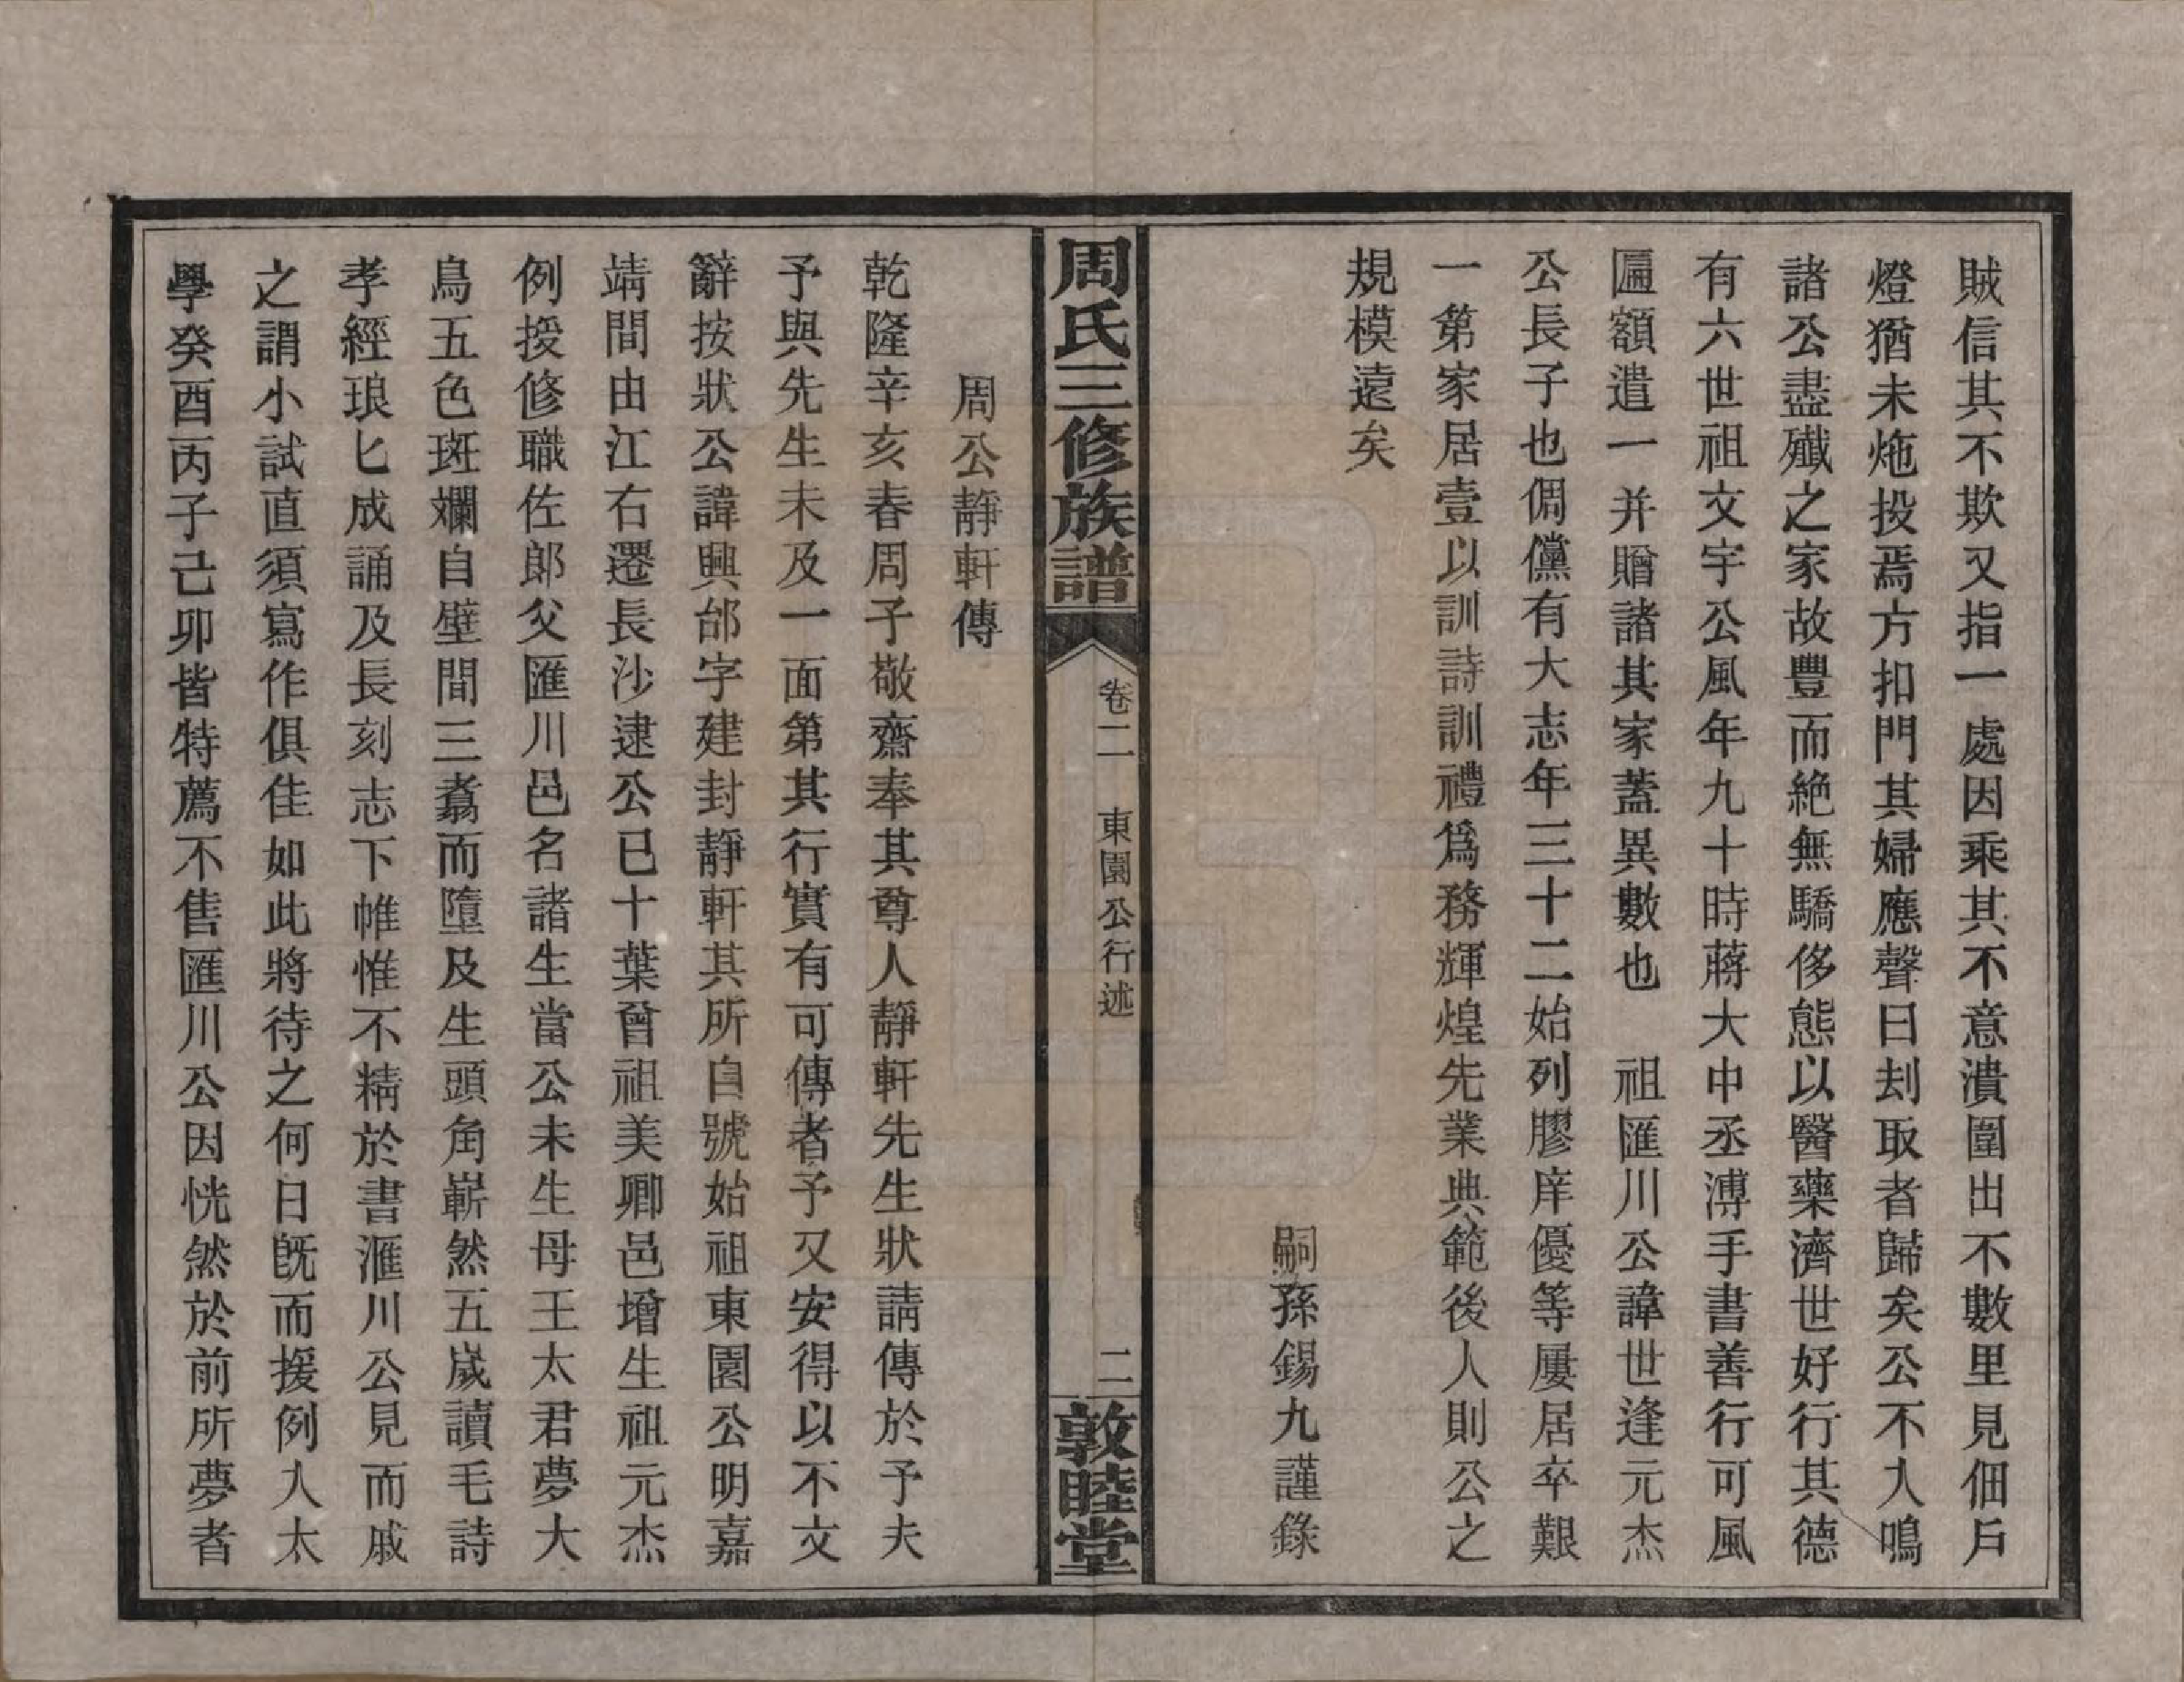 賊信其不欺又指一處因乘其不意潰圍出不數里見佃戶
燈猶未炧投焉方扣門其婦應聲曰刦取者歸矣公不入鳴
諸公盡殲之家故豐而絶無驕侈態以醫藥濟世好行其德
有六世祖文宇公風年九十時蔣大中丞溥手書善行可風
匾額遣一并贈諸其家蓋異數也　祖匯川公諱世逢元杰
公長子也倜儻有大志年三十二始列膠庠優等屢居卒艱
一第家居壹以訓詩訓禮爲務輝煌先業典範後人則公之
規模遠矣
嗣孫錫九謹錄
周氏三修族譜
卷二　東園公行述
二
敦睦堂
周公靜軒傳
乾隆辛亥春周子敬齋奉其尊人靜軒先生狀請傳於予夫
予與先生未及一面第其行實有可傳者予又安得以不文
辭按狀公諱興邰字建封靜軒其所自號始祖東園公明嘉
靖間由江右遷長沙逮公已十葉曾祖美卿邑增生祖元杰
例授修職佐郎父匯川邑名諸生當公未生母王太君夢大
鳥五色斑斕自壁間三翥而墮及生頭角嶄然五歲讀毛詩
孝經琅匕成誦及長刻志下帷惟不精於書滙川公見而戚
之謂小試直須寫作俱佳如此將待之何日旣而援例入太
學癸酉丙子己卯皆特薦不售匯川公因恍然於前所夢者